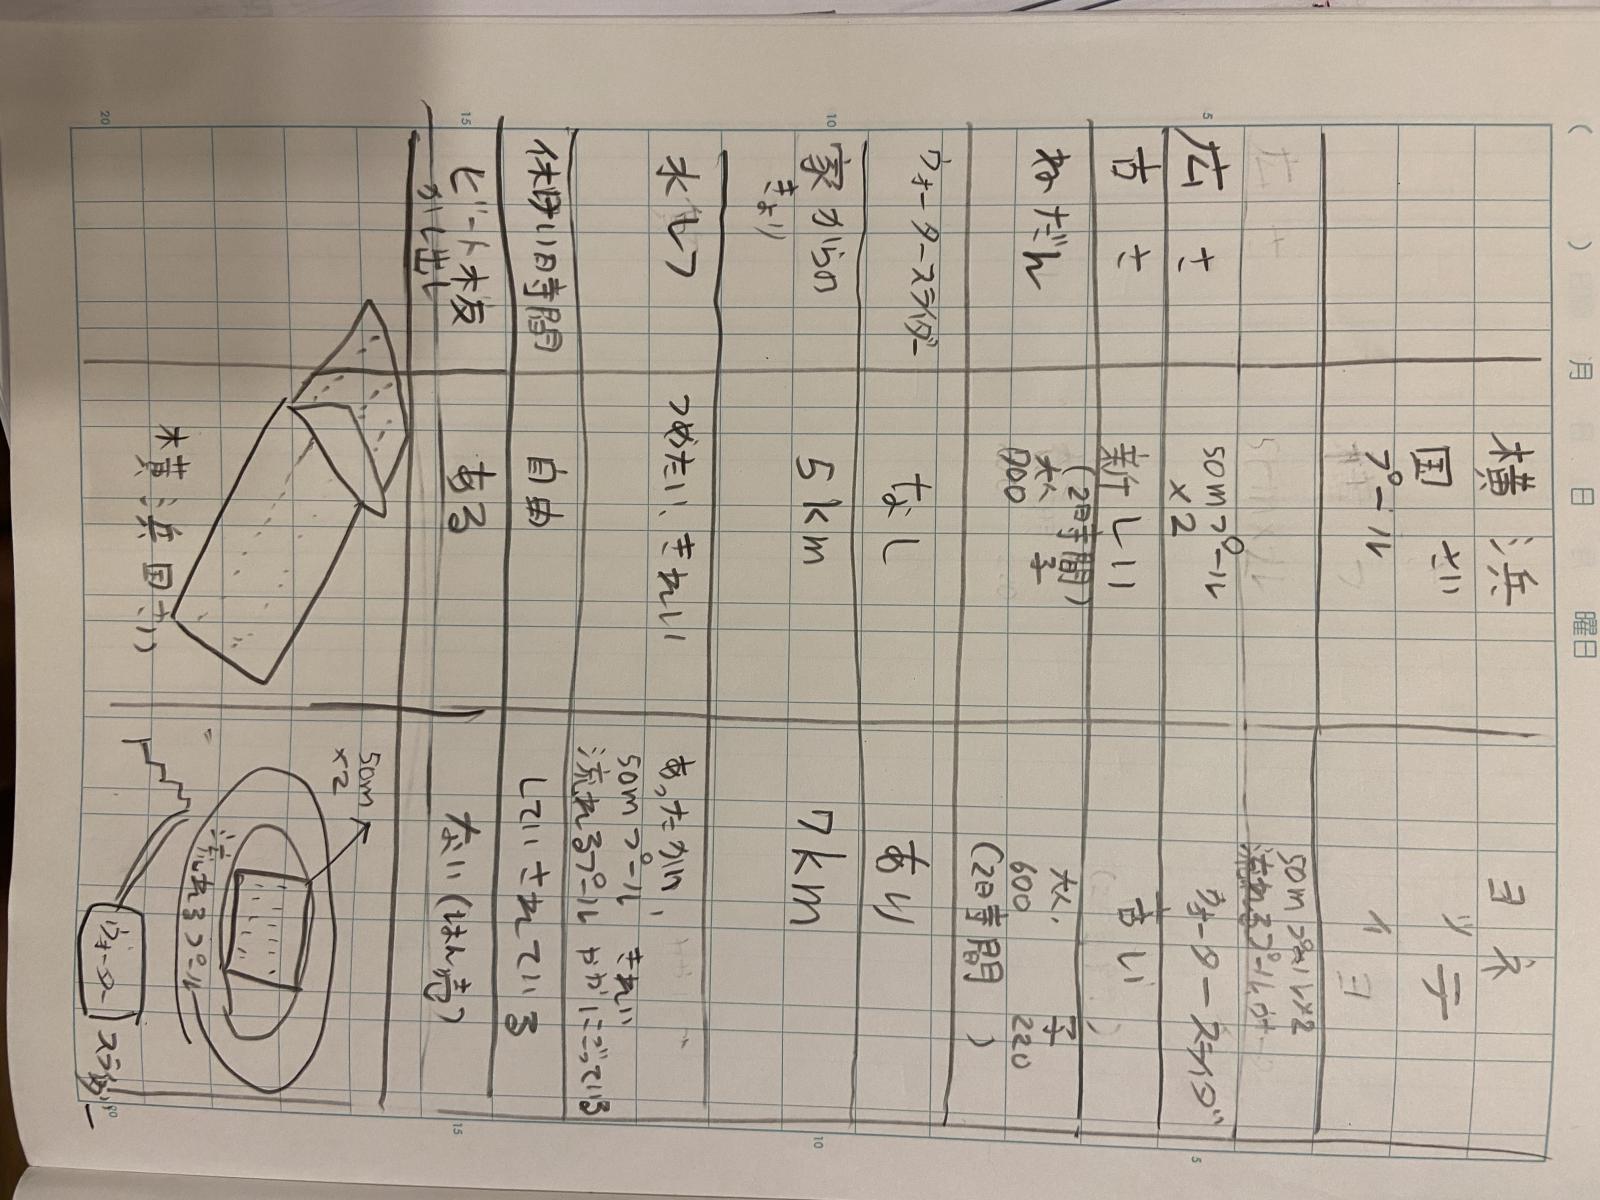 ( ) 月 日 曜日
横浜
国さい
プール
ヨネ
ッテ
イヨ
広さ
50mプール
×2
50mプール×2
流れるプール
ウォータースライダ
古さ
新しい
古い
ねだん
(2時間)
大人 子
大人 子
600 220
(2時間)
ウォータースライダー
なし
あり
家からの
きょり
5km
7km
水しつ
つめたい、きれい
あったかい、
50mプール きれい
流れるプール ややにごっている
休けい時間
自由
していされている
ビート板
かし出し
ある
ない(はん売)
横浜国さい
50m
×2
流れるプール
ウォーター
スライダー
5
10
15
20
5
10
15